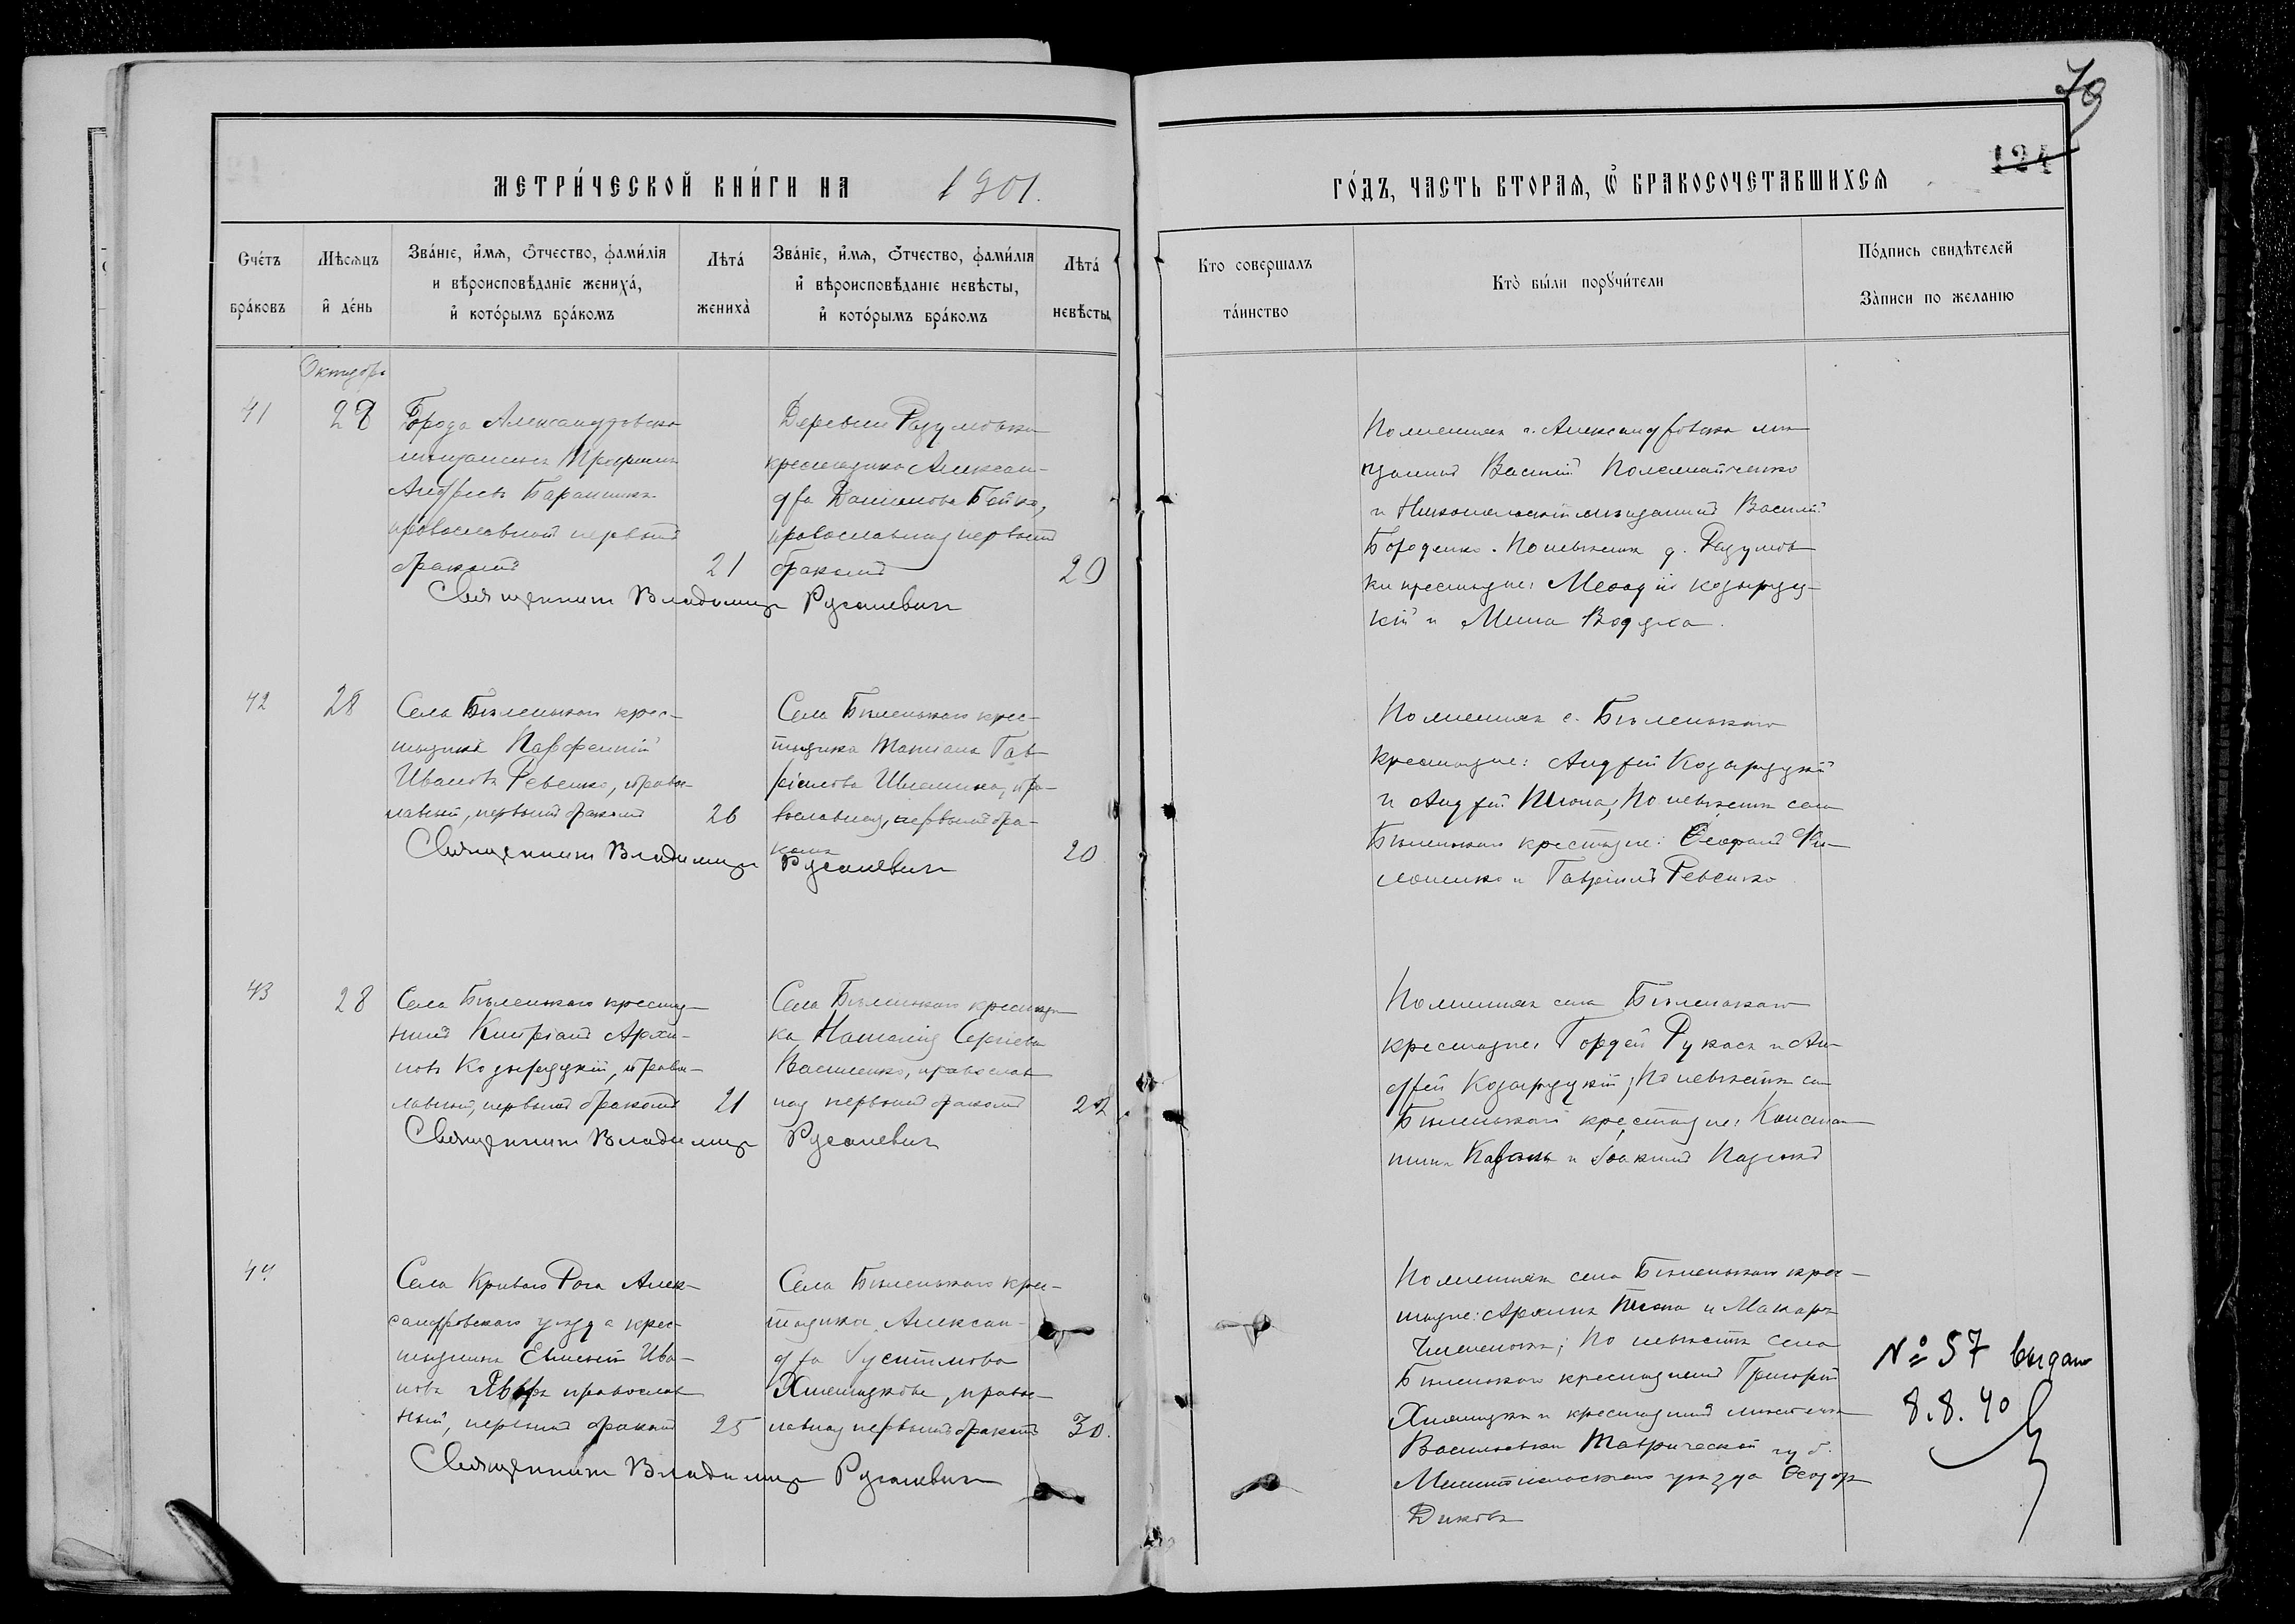 70
124
МЕТРИ́ЧЕСКОЙ КНИ́ГИ НА 1901.
ГО́ДЪ, ЧАСТЬ ВТОРАѦ, Ѿ БРАКОСОЧЕТАВШИХСѦ
Сче́тъ бра́ковъ
Мѣсѧцъ и де́нь
Зва́нїе, и҆́мѧ, ѻ҆́тчество, фами́лїѧ
и вѣроисповѣ́данїе жениха́,
и҆ кото́рымъ бра́комъ
Лѣта́ жениха̀
Зва́нїе, и҆́мѧ, ѻ҆́тчество, фами́лїѧ
и҆ вѣроисповѣ́данїе невѣ́сты,
и҆ кото́рымъ бра́комъ
Лѣта́ невѣ́сты
Кто совершалъ
та́инство
Кто̀ бы́ли порꙋчи́тели
По́дпись свидѣтелей
За̀писи по желанїю
Октября
41
28
Города Александровска
мѣщанинъ
Андреевъ
православный первымъ
бракомъ
21
Деревни Разумовки
крестьянка Алексан-
дра Бойко,
православная первымъ
бракомъ
20
Священникъ Владимиръ Русаневич
По женихѣ г. Александровска мѣ-
щанинъ Василій
и мѣщанинъ Василій
Бороденко. По невѣстѣ д. Разумов-
ки крестьяне: Козыряц-
кій и Мина Водяха.
42
28
Села Бѣленькаго крес-
тьянинъ Парфеній
Ивановъ Ревенко, правос-
лавный, первымъ бракомъ
26
Села Бѣленькаго крес-
тьянка Татіана Гав-
ріилова пра-
вославная, первымъ бра-
комъ
20
Священникъ Владимиръ Русаневич
По женихѣ с. Бѣленькаго
крестьяне: Андрей Козыряцкій
и Андрей По невѣстѣ села
Бѣленькаго крестьяне:
и Гавріилъ Ревенко
43
28
Села Бѣленькаго крестья-
нинъ Кипріанъ Архи-
повъ Козыряцкій, правос-
лавный, первымъ бракомъ
21
Села Бѣленькаго крестьян-
ка Наталія Сергіева
Василенко, православ-
ная первымъ бракомъ
22
Священникъ Владимиръ Русаневич
По женихѣ села Бѣленькаго
крестьяне: Гордей Рукасъ и Ан-
дрей Козыряцкій; По невѣстѣ села
Бѣленькаго крестьяне: Констан-
тинъ и Іоакимъ
44
Села Кривого Рога Алек-
сандровскаго уѣзда крес-
тьянинъ Евменій Ива-
новъ православ-
ный, первымъ бракомъ
25
Села Бѣленькаго крес-
тьянка Алексан-
дра Іустинова
правос-
лавная первымъ бракомъ
30.
Священникъ Владимиръ Русаневич
По женихѣ села Бѣленькаго крес-
тьяне: Архипъ и Макаръ
По невѣстѣ села
Бѣленькаго крестьянинъ Григорій
и крестьянинъ мѣстечка
Васильевки Таврической губ.
Мелитопольскаго уѣзда Ѳеодоръ
Диковъ
№ 57 выдано
8.8.40